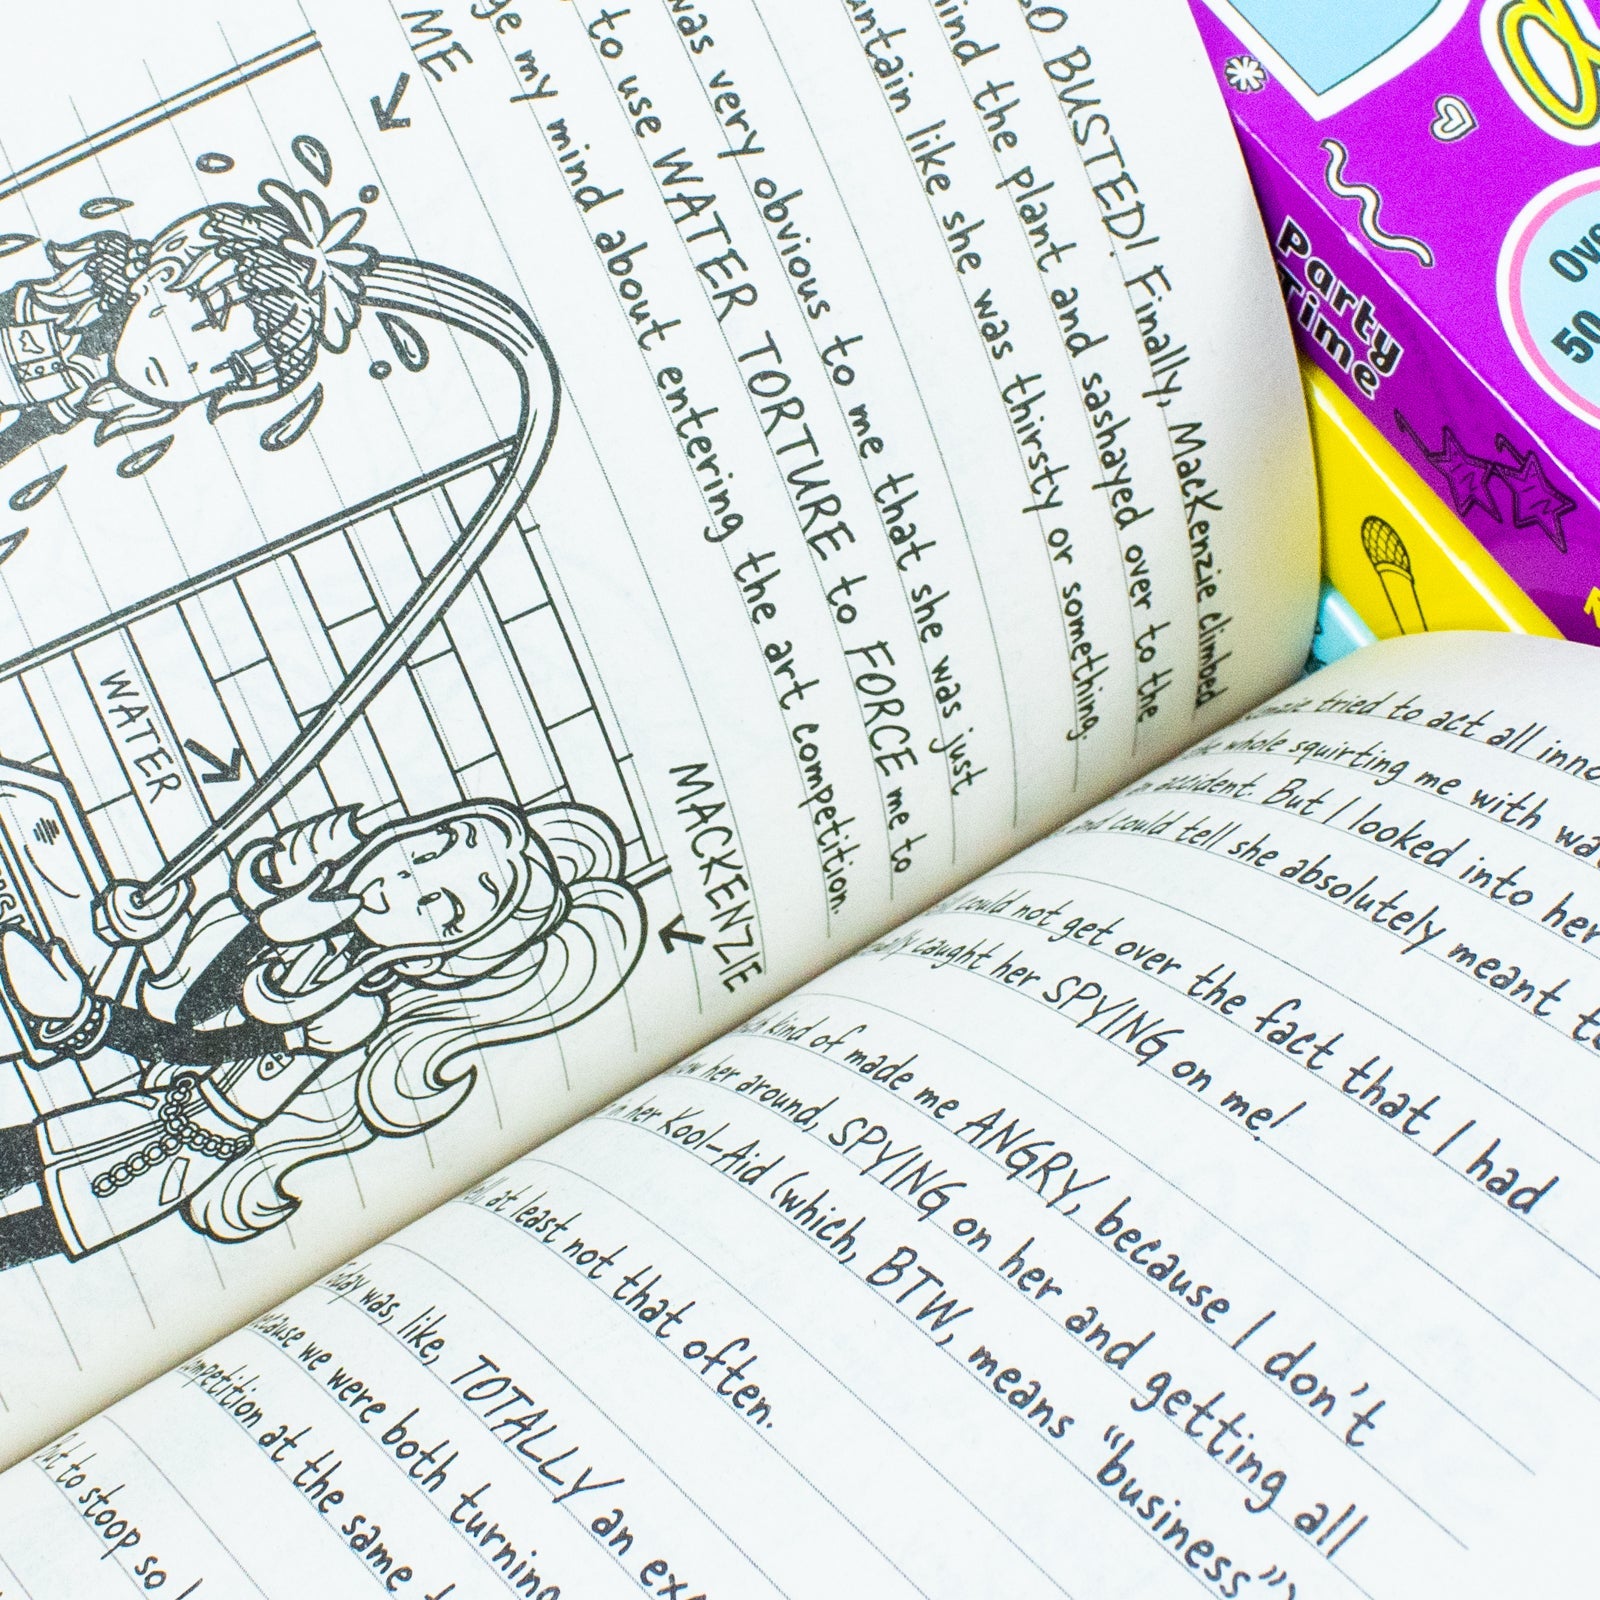 BUSTED! Finally, MacKenzie climbed
the plant and sashayed over to the
like she was thirsty or something.
was very obvious to me that she was just
to use WATER TORTURE to FORCE me to
my mind about entering the art competition.
ME
WATER
MACKENZIE
tried to act all
whole squirting me with
accident. But I looked into her
and could tell she absolutely meant
could not get over the fact that I had
caught her SPYING on me!
kind of made me ANGRY, because I don't
her around, SPYING on her and getting all
in her Kool-Aid (which, BTW, means "business")
at least not that often.
was, like, TOTALLY an
we were both turning
at the same
to stoop so I
Party
Time
50